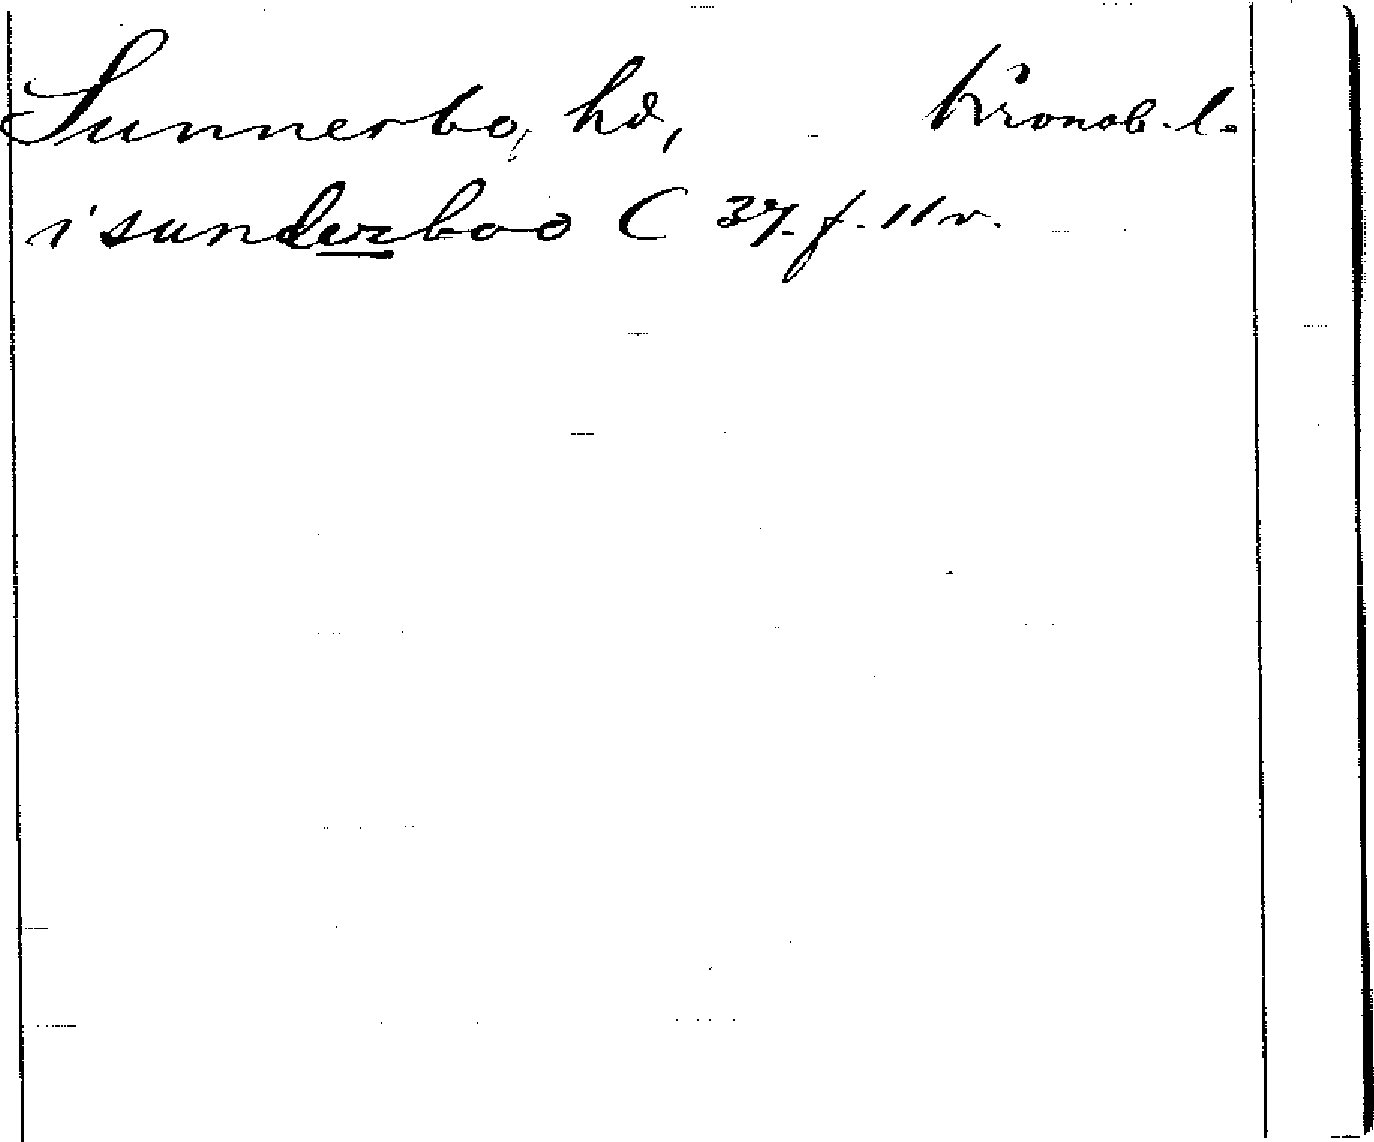 Sunnerbo, hd, Kronob. l.
i sunderboo C 37. f. 11 v.